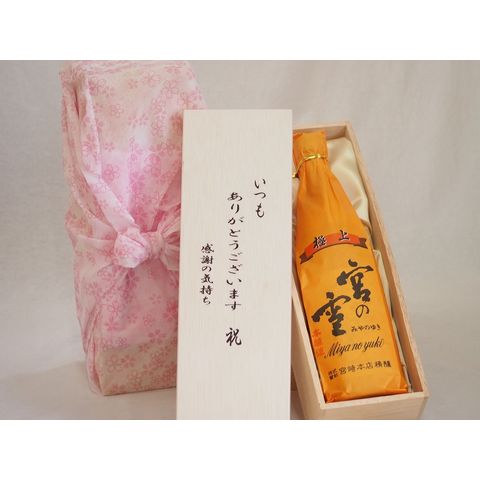 いつも
ありがとうございます 祝
感謝の気持ち
極上
宮の雪
みやのゆき
本醸造
Miya no yuki
宮﨑本店積醸